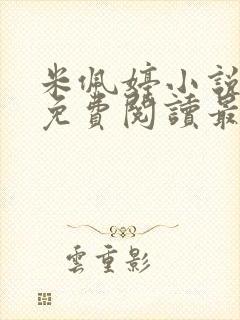 米佩婷小說
免費閱讀最
雲重影